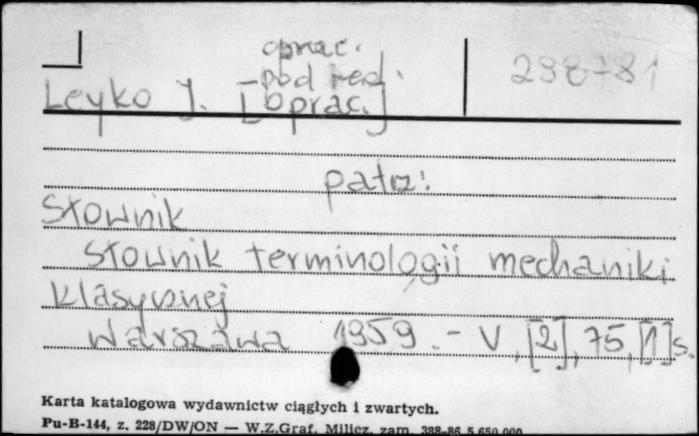 oprac.
pod red.
Leyko J. [oprac.]
298-81
patrz:
Słownik
Słownik terminologii mechaniki
klasycznej
Warszawa 1959. - V, [2], 75, [1] s.
Karta katalogowa wydawnictw ciągłych i zwartych.
Pu-B-144, z. 228/DW/ON — W.Z.Graf. Milicz, zam. 388-86 5.650.000